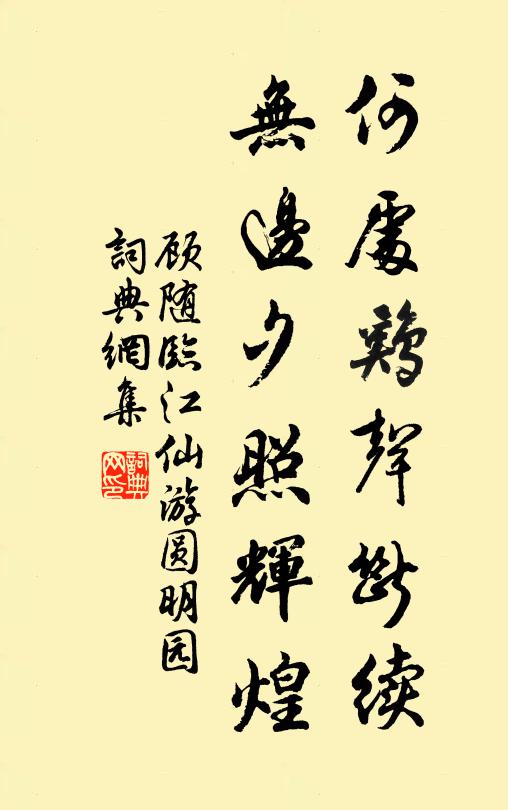 何處鷄聲斷续
無邊夕照輝煌
顾随临江仙游圆明园
詞典網集
詞典网印